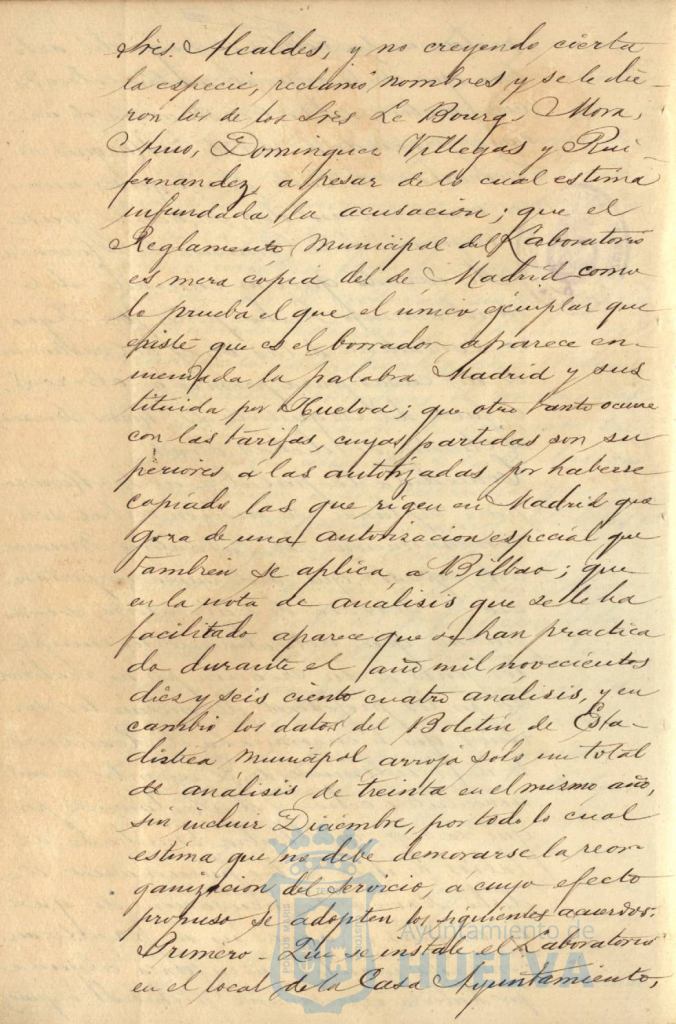 Sres. Alcaldes, y no creyendo cierta
la especie, reclamó nombres, y se le die-
ron los de los Sres Le Bourg, Mora,
Amo, Dominguez Villegas y Rui-
fernandez, a pesar de lo cual estima
infundada la acusación; que el
Reglamento Municipal del Laboratorio
es mera copia del de Madrid como
lo prueba el que el único ejemplar que
existe que es el borrador aparece en-
mendada la palabra Madrid y sus
tituida por Huelva; que otro tanto ocurre
con las tarifas, cuyas partidas son su
periores a las autorizadas por haberse
copiado las que rigen en Madrid que
goza de una autorizacion especial que
tambien se aplica a Bilbao; que
en la nota de análisis que se le ha
facilitado aparece que se han practica
do durante el año mil novecientos
diez y seis ciento cuatro análisis, y en
cambio los datos del Boletín de Esta-
distica Municipal arroja solo un total
de análisis de treinta en el mismo año,
sin incluir Diciembre, por todo lo cual
estima que no debe demorarse la reor-
ganizacion del servicio, a cuyo efecto
propuso se adopten los siguientes acuerdos:
Primero - Que se instale el Laboratorio
en el local de la Casa Ayuntamiento,
Ayuntamiento de
HUELVA